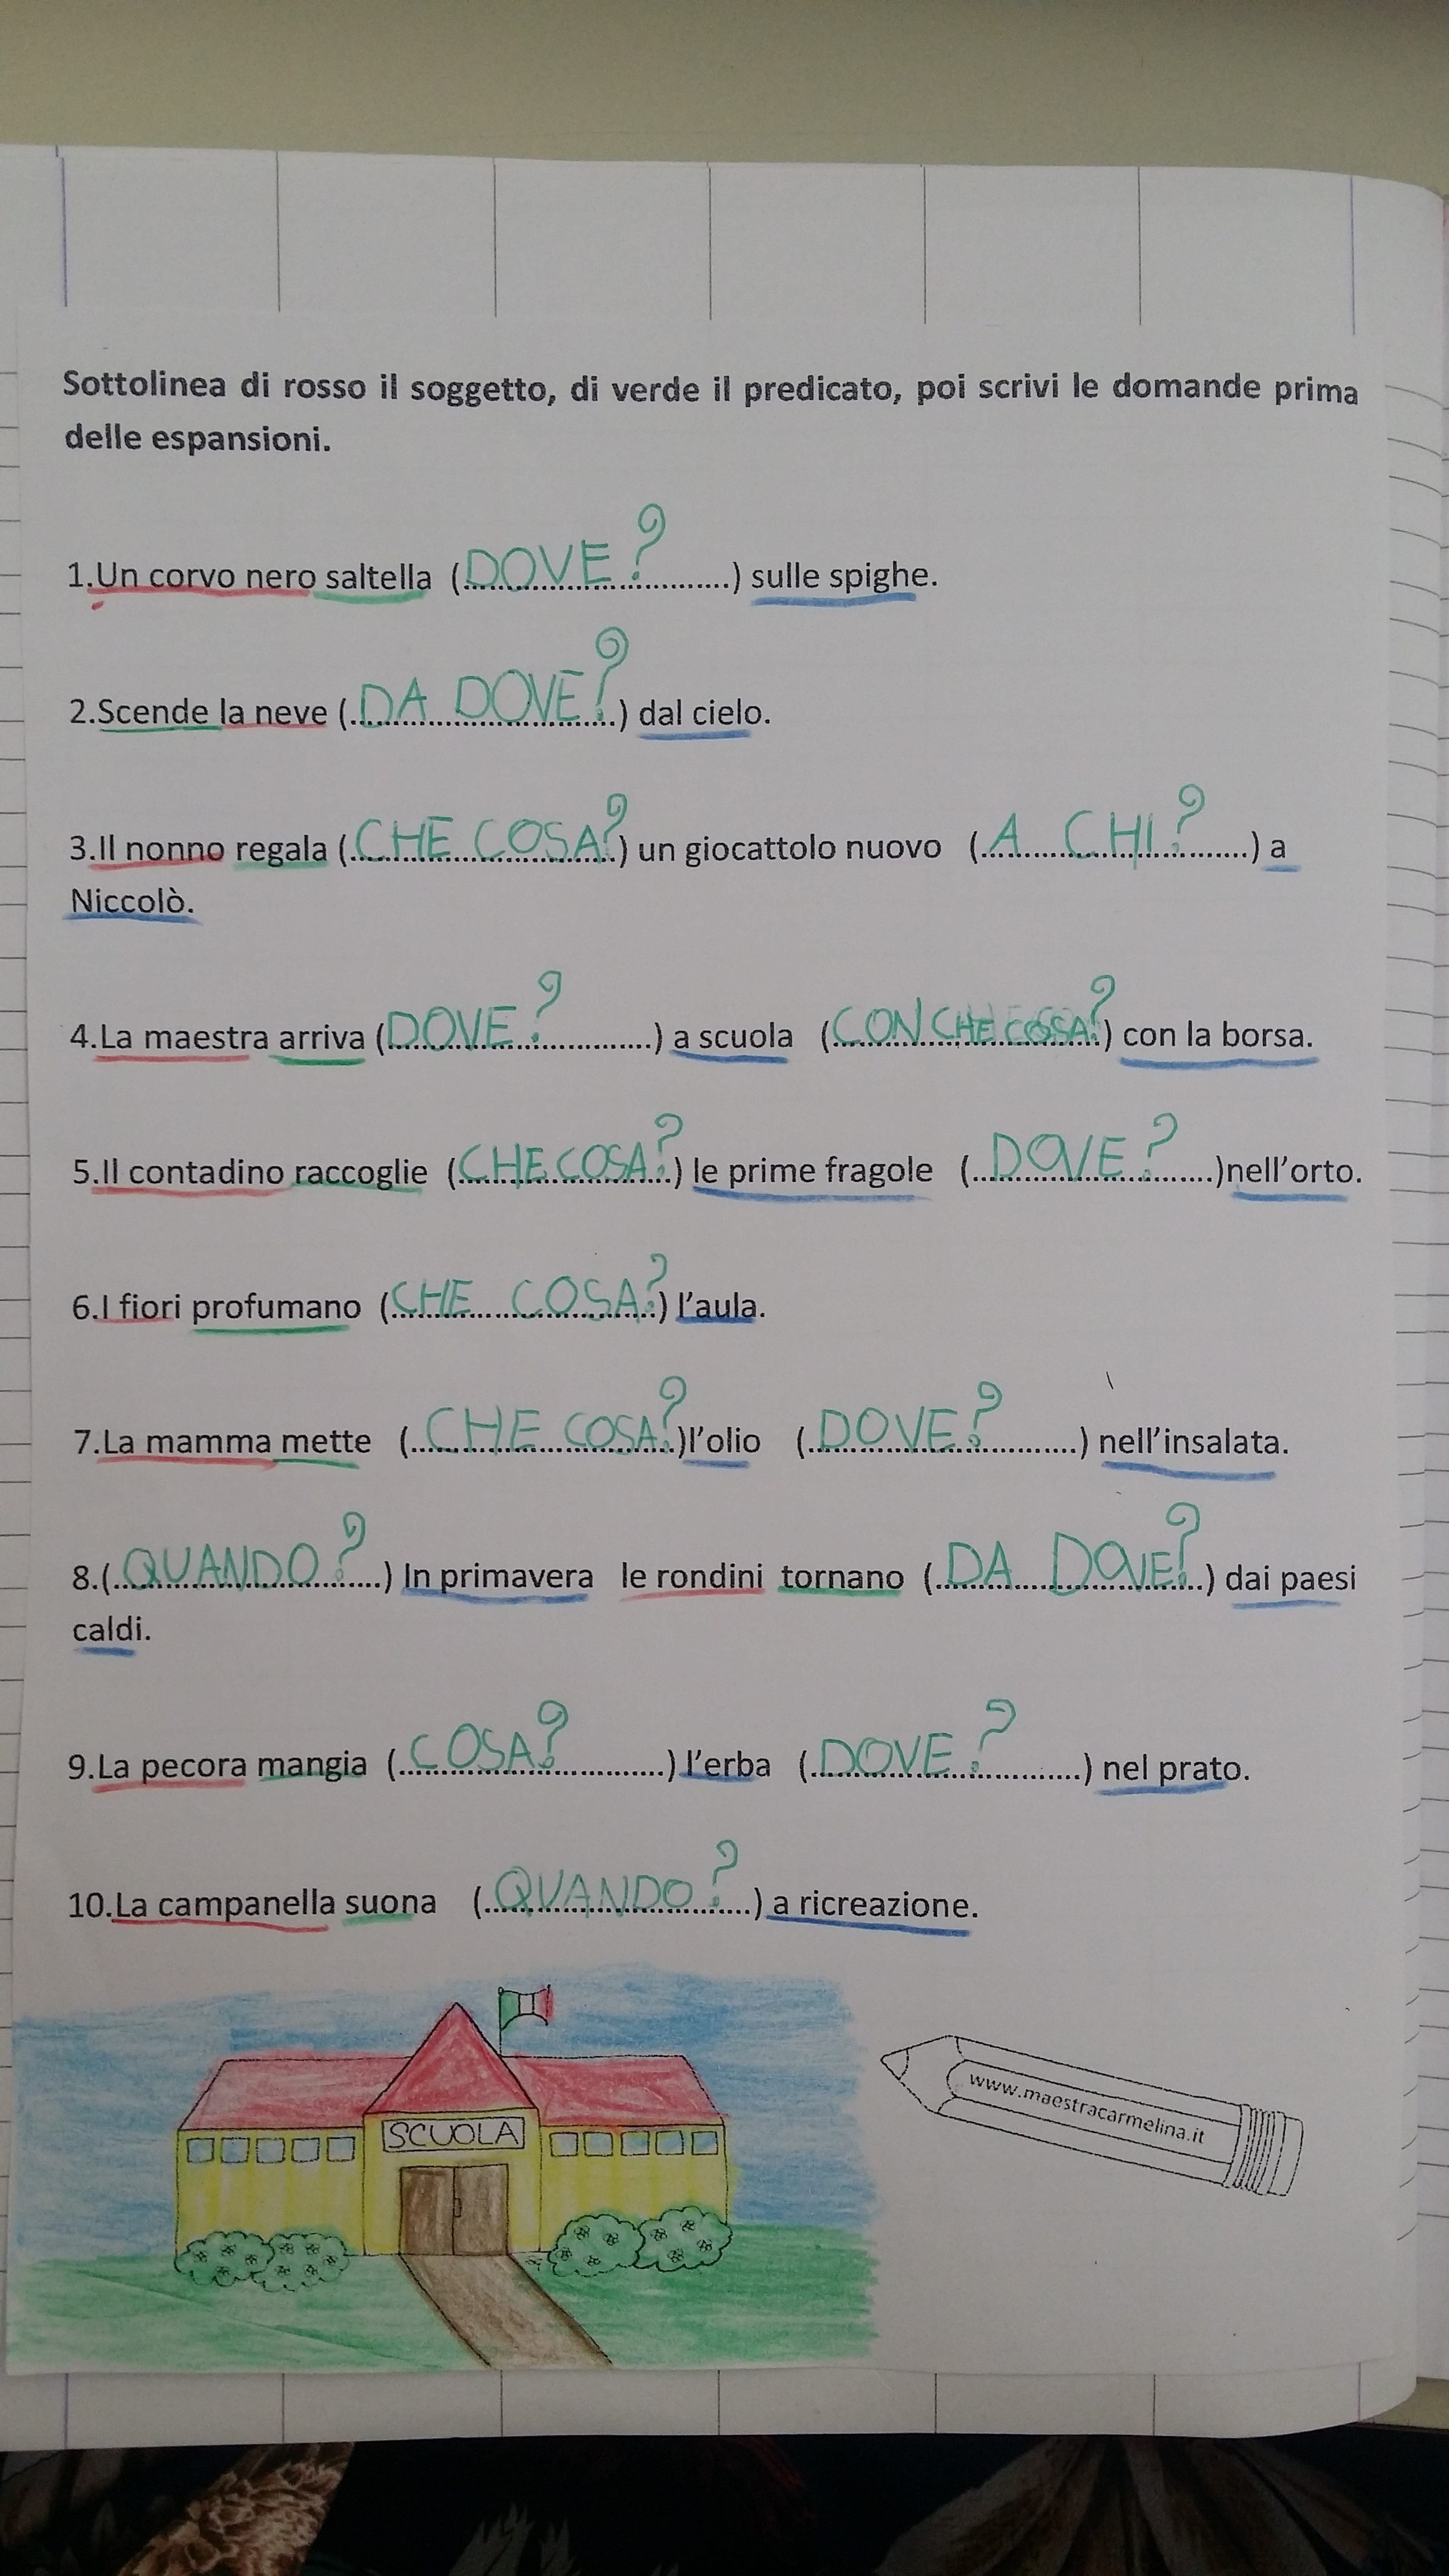 Sottolinea di rosso il soggetto, di verde il predicato, poi scrivi le domande prima
delle espansioni.
1.Un corvo nero saltella (DOVE?) sulle spighe.
2.Scende la neve (DA DOVE?) dal cielo.
3.Il nonno regala (CHE COSA?) un giocattolo nuovo (A CHI?) a
Niccolò.
4.La maestra arriva (DOVE?) a scuola (CON CHE COSA?) con la borsa.
5.Il contadino raccoglie (CHE COSA?) le prime fragole (DOVE?)nell'orto.
6.I fiori profumano (CHE COSA?) l'aula.
7.La mamma mette (CHE COSA?)l'olio (DOVE?) nell'insalata.
8.(QUANDO?) In primavera le rondini tornano (DA DOVE?) dai paesi
caldi.
9.La pecora mangia (COSA?) l'erba (DOVE?) nel prato.
10.La campanella suona (QUANDO?) a ricreazione.
SCUOLA
www.maestracarmelina.it